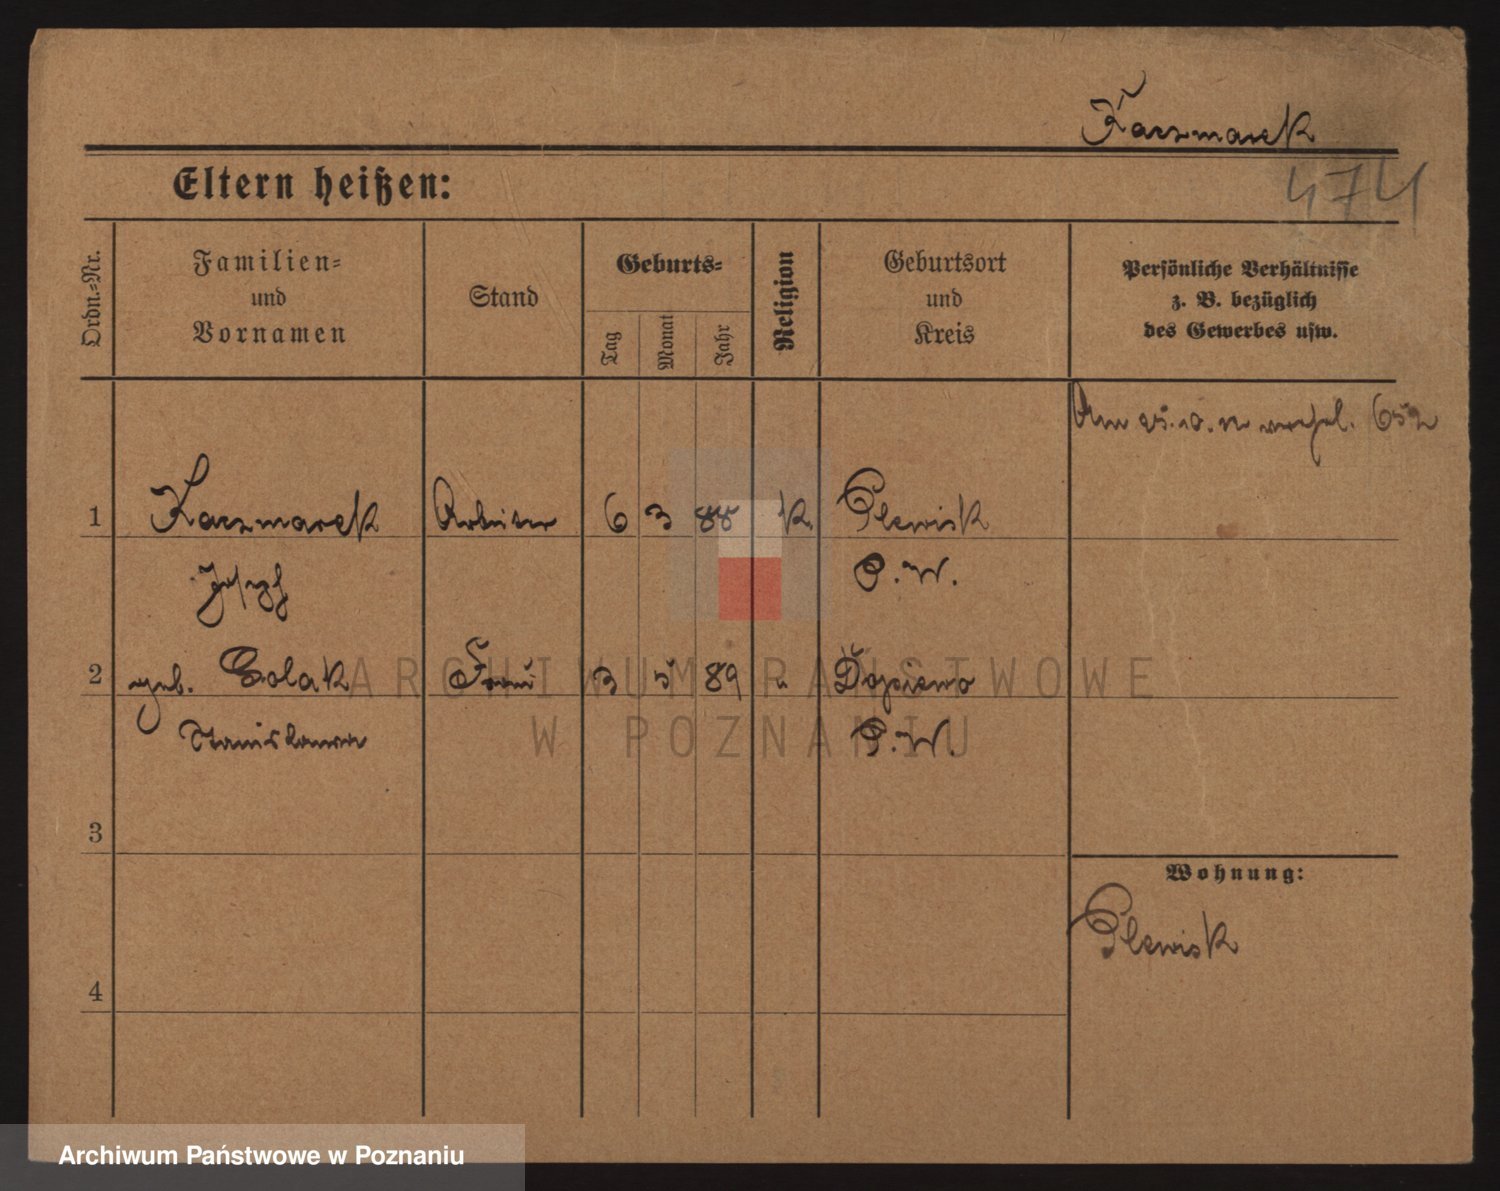 Kaczmarek
Eltern heißen:
474
Ordn.-Nr.
Familien-
und
Vornamen
Stand
Geburts-
Tag
Monat
Jahr
Religion
Geburtsort
und
Kreis
Persönliche Verhältnisse
z. B. bezüglich
des Gewerbes usw.
Am 25. 10. 12 verehel. 652
1 Kaczmarek Arbeiter 6 3 88 k. Plewisk
Josef P. W.
2 geb. Solak Frau 3 5 89 " Dopiewo
Stanislawa P. W.
3
Wohnung:
Plewisk
4
ARCHIWUM PAŃSTWOWE
W POZNANIU
Archiwum Państwowe w Poznaniu